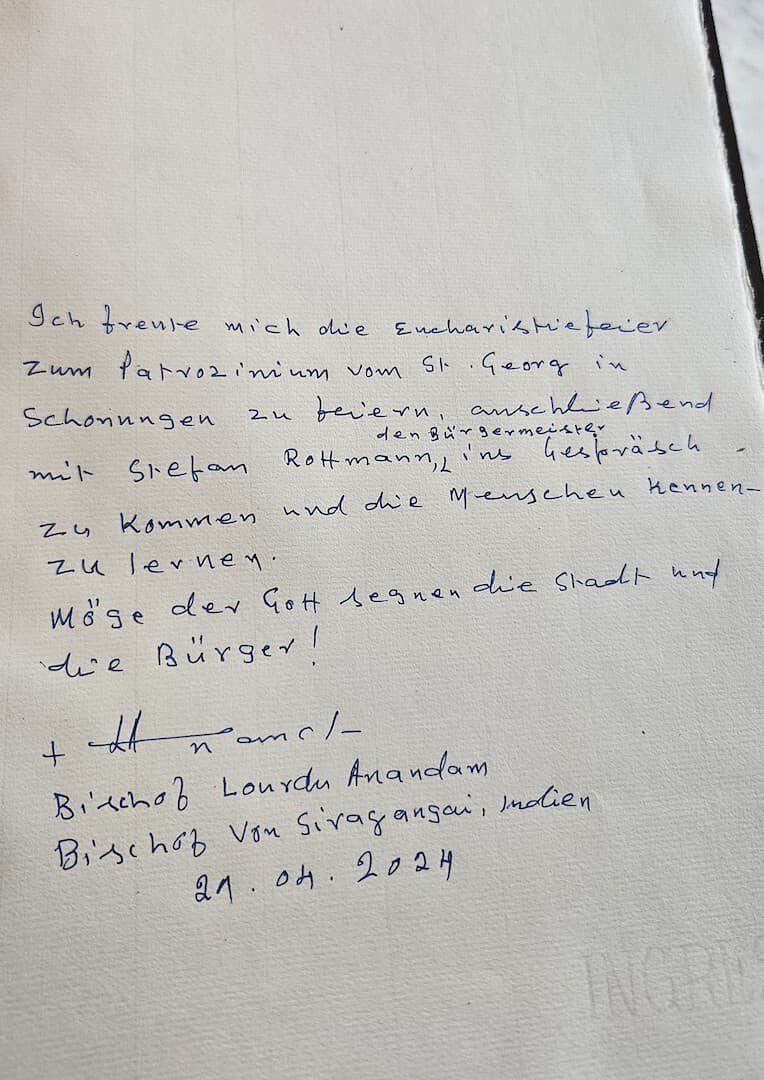 Ich freute mich die Eucharistiefeier
zum Patrozinium vom St. Georg in
Schonungen zu feiern, anschließend
den Bürgermeister
mit Stefan Rottmann, ins Gespräsch
zu kommen und die Menschen kennen-
zu lernen.
Möge der Gott segnen die Stadt und
die Bürger!
+
Bischof Lourdu Anandam
Bischof von Sivagangai, Indien
21.04.2024
INGRES